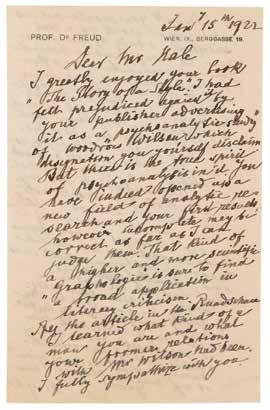 PROF. Dr FREUD
WIEN, IX., BERGGASSE 19.
Jany 15th 1922
Dear Mr Hale
I greatly enjoyed your book
"The Story of a Style". I had
felt prejudiced against it by
your publisher advertising
it as a "psychoanalytic study
of Woodrow Wilson" which
designation you yourself disclaim
But there is the true spirit
of psychoanalysis in it. You
have indeed opened up a
new field of analytic re-
search and your first results
however incomplete may be
correct as far as I can
judge them. That kind of
a higher and more scientific
"graphology" is sure to find
a broad application in
literary criticism.
By the article in the Rundschau
I learned what kind of a
man you are and what
your former relations
with Mr Wilson had been.
I fully sympathize with you